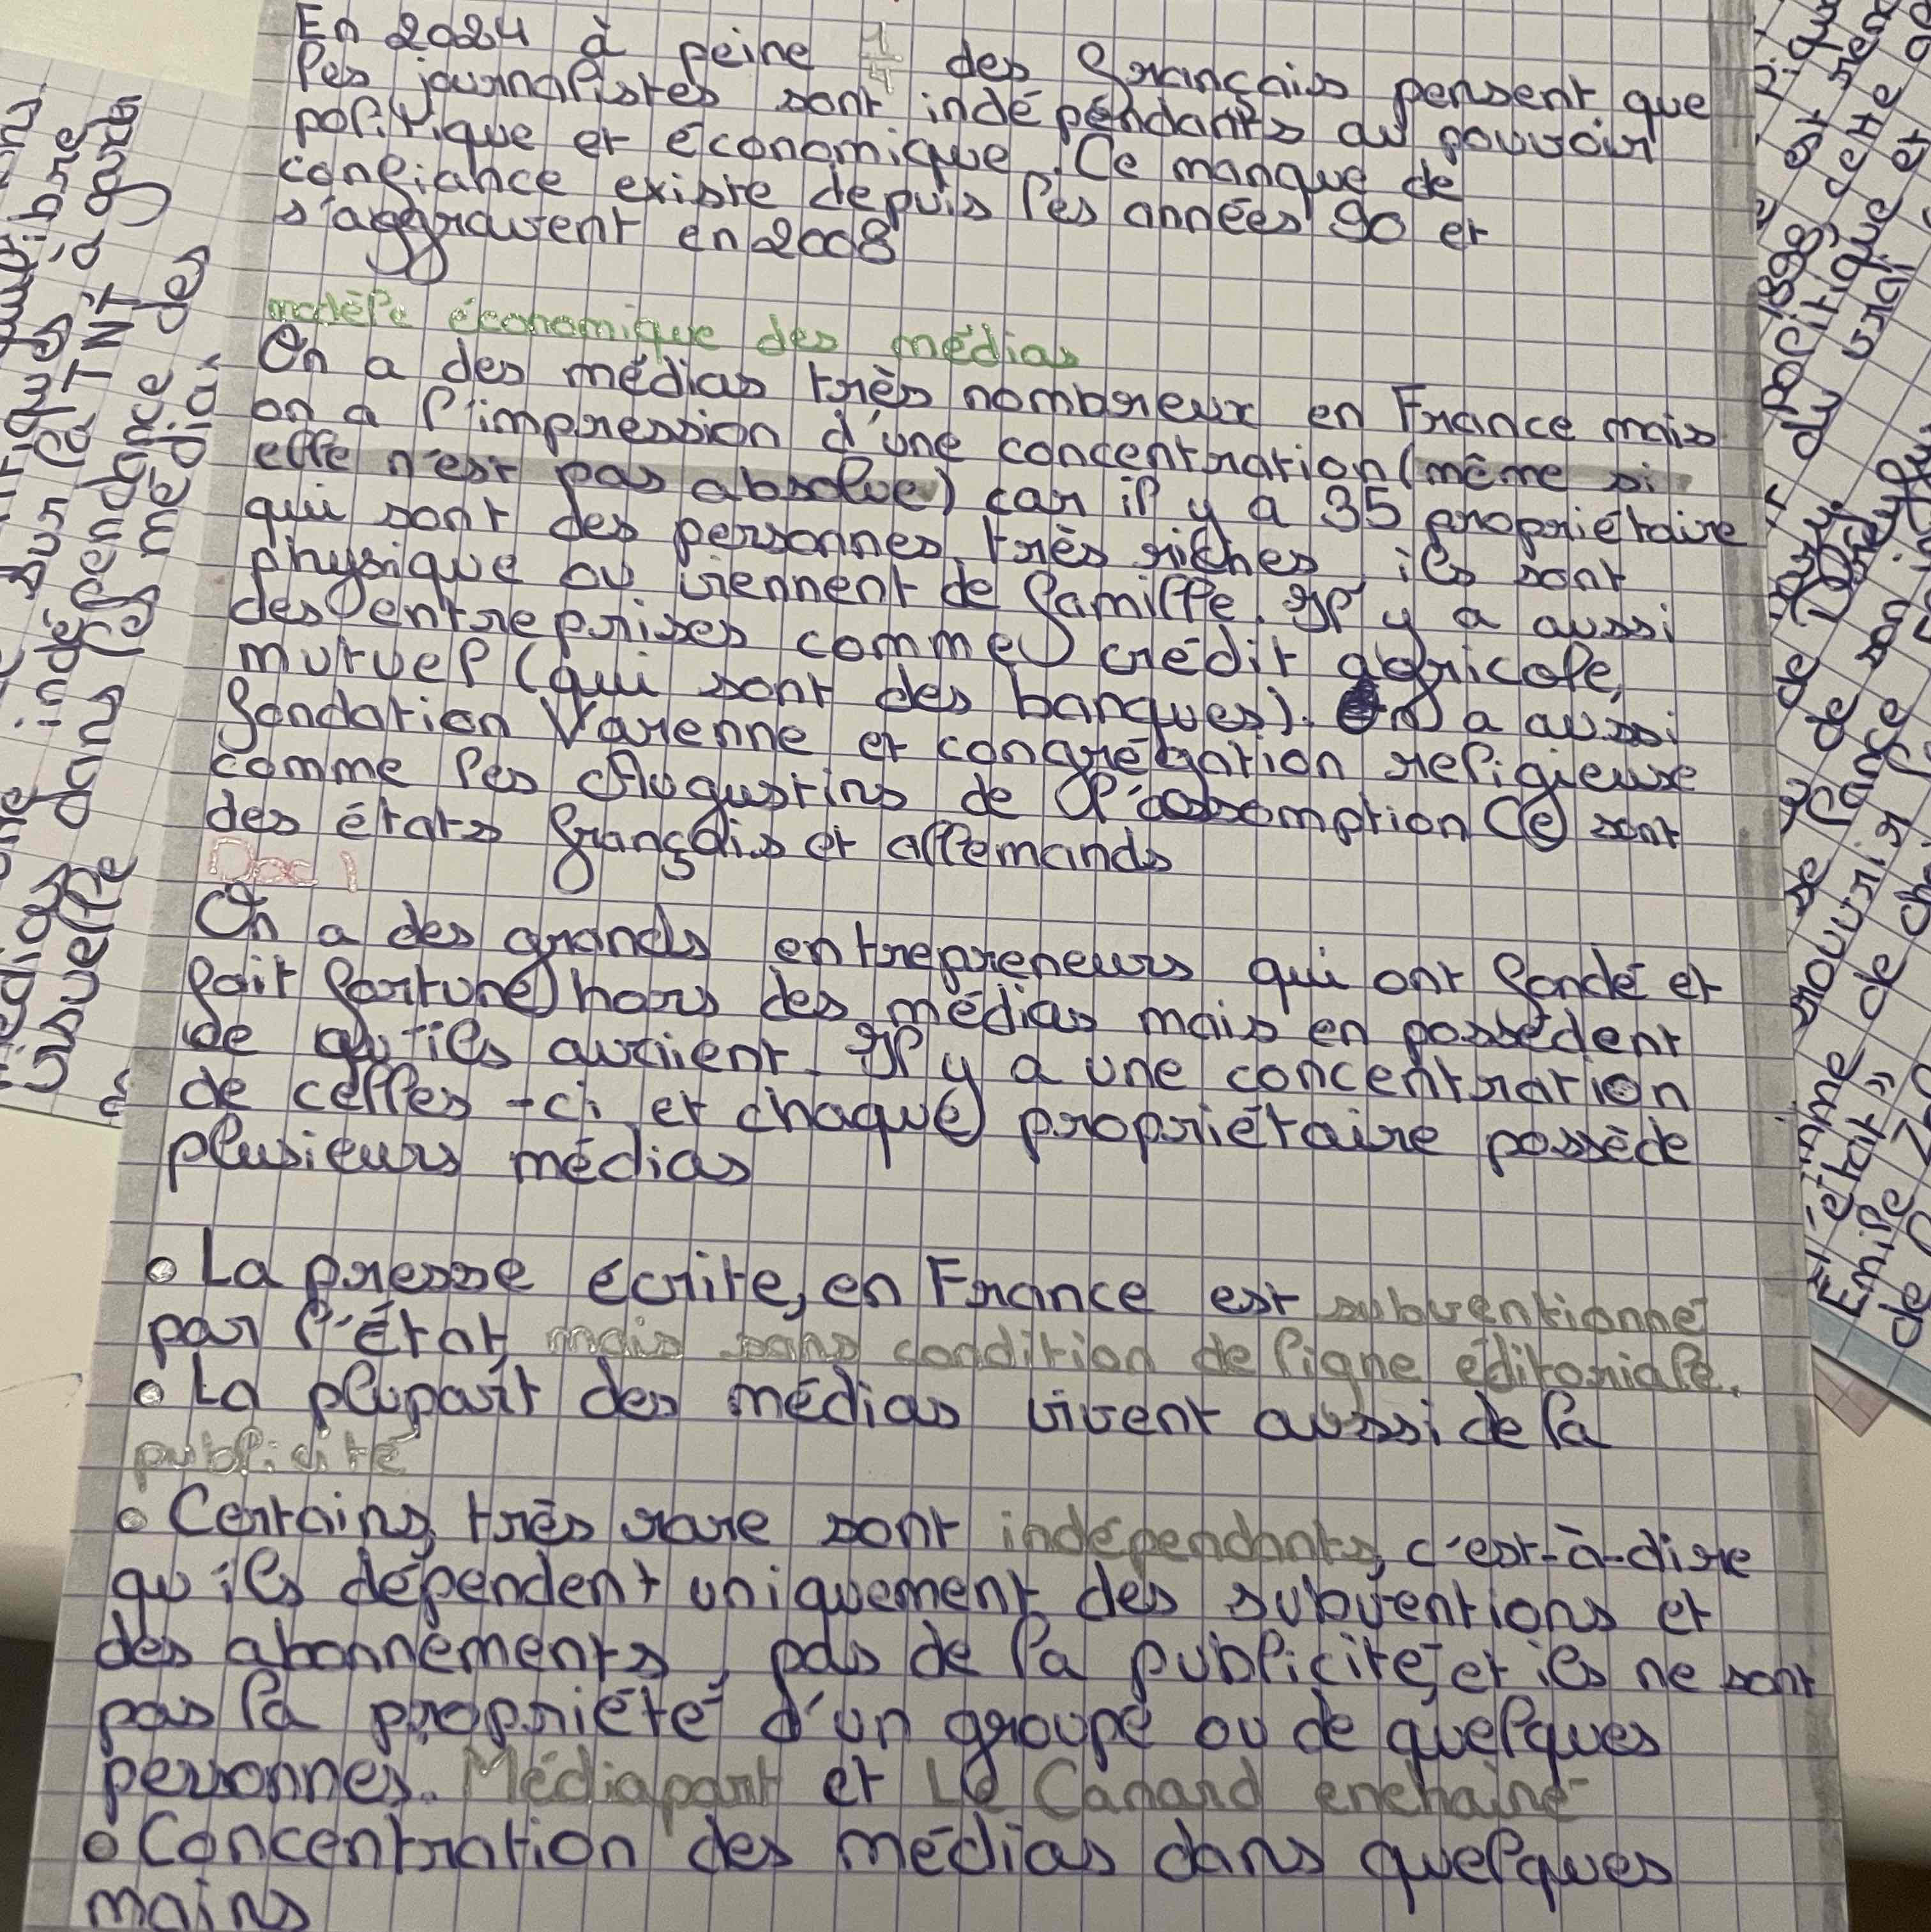 En 2024 à peine 1/4 des français pensent que
les journalistes sont indépéndants au pouvoir
politique et économique. Ce manque de
confiance existe depuis les années 90 et
s'aggravent en 2008
modèle économique des médias
On a des médias très nombreux en France mais
on a l'impression d'une concentration (même si
elle n'est pas absolue) car il y a 35 propriétaire
qui sont des personnes très riches, ils sont
physique ou viennent de famille. Il y a aussi
des entreprises comme crédit agricole,
mutuel (qui sont des banques). On a aussi
fondation Varenne et congrégation religieuse
comme les Augustins de l'assomption Ce sont
des états français et allemands
Doc 1
On a des grands entrepreneurs qui ont fondé et
fait fortune hors des médias mais en possèdent
de qu'ils auraient. Il y a une concentration
de celles-ci et chaque propriétaire possède
plusieurs médias
• La presse écrite, en France est subventionné
par l'État, mais sans condition de ligne éditoriale.
• La plupart des médias vivent aussi de la
publicité
• Certains, très rare sont indépendants, c'est-à-dire
qu'ils dépendent uniquement des subventions et
des abonnements, pas de la publicité, et ils ne sont
pas la propriété d'un groupe ou de quelques
personnes. Médiapart et Le Canard enchainé
• Concentration des médias dans quelques
mains